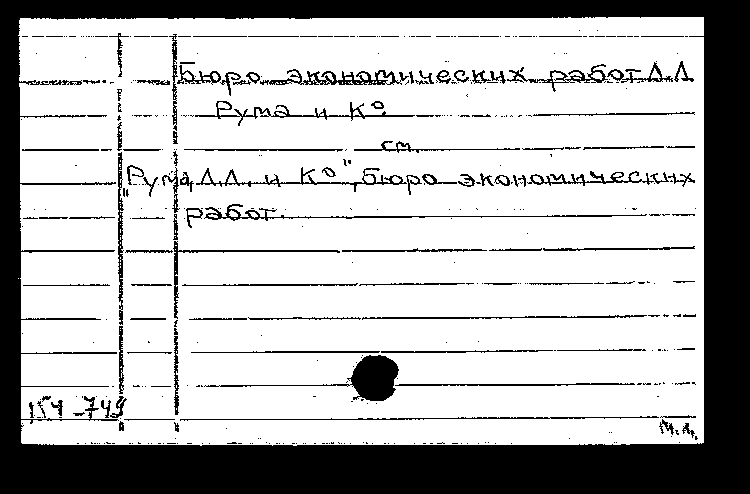 Бюро экономических работ Л.Л.
Рума и К°.
см.
"Рума, Л.Л. и К°", бюро экономических
работ.
154-749
М.Л.